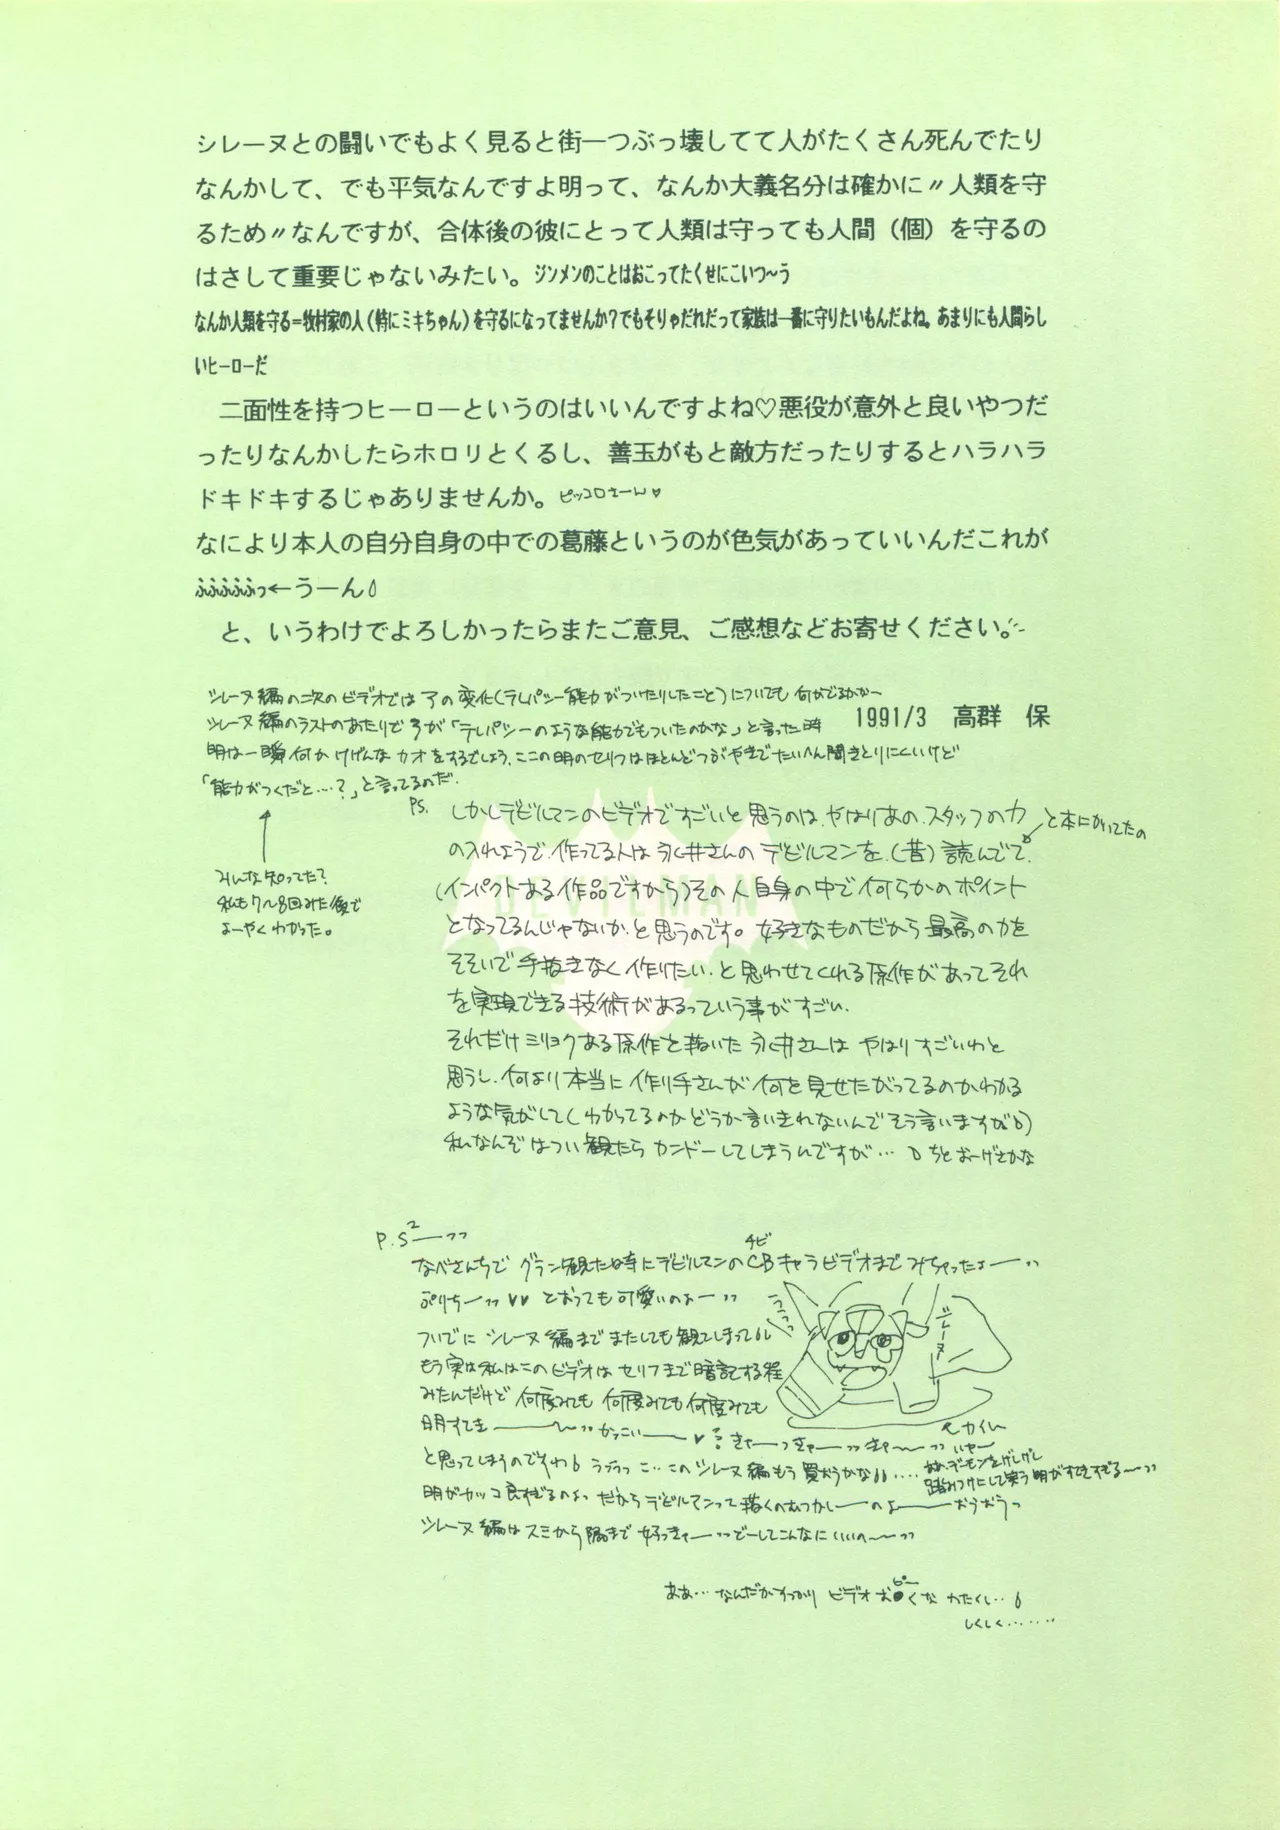 シレーヌとの闘いでもよく見ると街一つぶっ壊してて人がたくさん死んでたり
なんかして、でも平気なんですよ明って、なんか大義名分は確かに〃人類を守
るため〃なんですが、合体後の彼にとって人類は守っても人間（個）を守るの
はさして重要じゃないみたい。ジンメンのことはおこってたくせにこいつ〜う
なんか人類を守る=牧村家の人(特にミキちゃん)を守るになってませんか?でもそりゃだれだって家族は一番に守りたいもんだよね。あまりにも人間らし
いヒーローだ
二面性を持つヒーローというのはいいんですよね♡悪役が意外と良いやつだ
ったりなんかしたらホロリとくるし、善玉がもと敵方だったりするとハラハラ
ドキドキするじゃありませんか。ピッコロさーん♥
なにより本人の自分自身の中での葛藤というのが色気があっていいんだこれが
ふふふふふっ←うーん
と、いうわけでよろしかったらまたご意見、ご感想などお寄せください。
シレーヌ編の次のビデオでは了の変化(テレパシー能力がついたりしたこと)についても何かでるかなー
シレーヌ編のラストのあたりで了が「テレパシーのような能力でもついたのかな」と言った時
1991/3 高群 保
明は一瞬何かけげんなカオをするでしょう。ここの明のセリフはほとんどつぶやきでたいへん聞きとりにくいけど
「能力がつくだと…?」と言ってるのだ.
↑
みんな知ってた?
私も7〜8回みた後で
よーやくわかった。
PS.
しかしデビルマンのビデオですごいと思うのは、やはりあの、スタッフの力
の入れようで、作ってる人は永井さんのデビルマンを、(昔)読んでて、
と本にかいてたの
(インパクトある作品ですから)その人自身の中で何らかのポイント
となってるんじゃないか、と思うのです。好きなものだから最高の力を
そそいで手抜きなく作りたい、と思わせてくれる原作があってそれ
を実現できる技術があるっていう事がすごい.
それだけミリョクある原作を描いた永井さんはやはりすごいわと
思うし、何より本当に作り手さんが何を見せたがってるのかわかる
ような気がして(わかってるのかどうか言いきれないんでそう言いますが)
私なんぞはつい観たらカンドーしてしまうんですが… ちとおーげさかな
DEVILMAN
P.S²ーッッ
なべさんちでグラン観た時にデビルマンのCBキャラビデオまでみちゃったよーッッ
チビ
ぷりちーッッ♥♥とおっても可愛いのよーッッ
ついでにシレーヌ編までまたしても観てしまって
もう実は私はこのビデオはセリフまで暗記する程
みたんだけど何度みても何度みても何度みても
明すてき――〜ッッかっこいい――♥きゃーっきゃーッッきゃ〜〜ッッ
シレーヌ
と思ってしまうのですわ うううっ こ…このシレーヌ編もう買おうかな…‥
カイム
いやー
デーモンをげしげし
踏みつけにして笑う明がすてきすぎる〜ッッ
明がカッコ良すぎるのよっ だからデビルマンって描くのむつかし――のよ――おうおうっ
シレーヌ編はスミから隅まで好っきゃーッッどーしてこんなにいいの〜〜ッッ
ああ…なんだかすっかりビデオおくなわたくし‥
しくしく‥‥‥